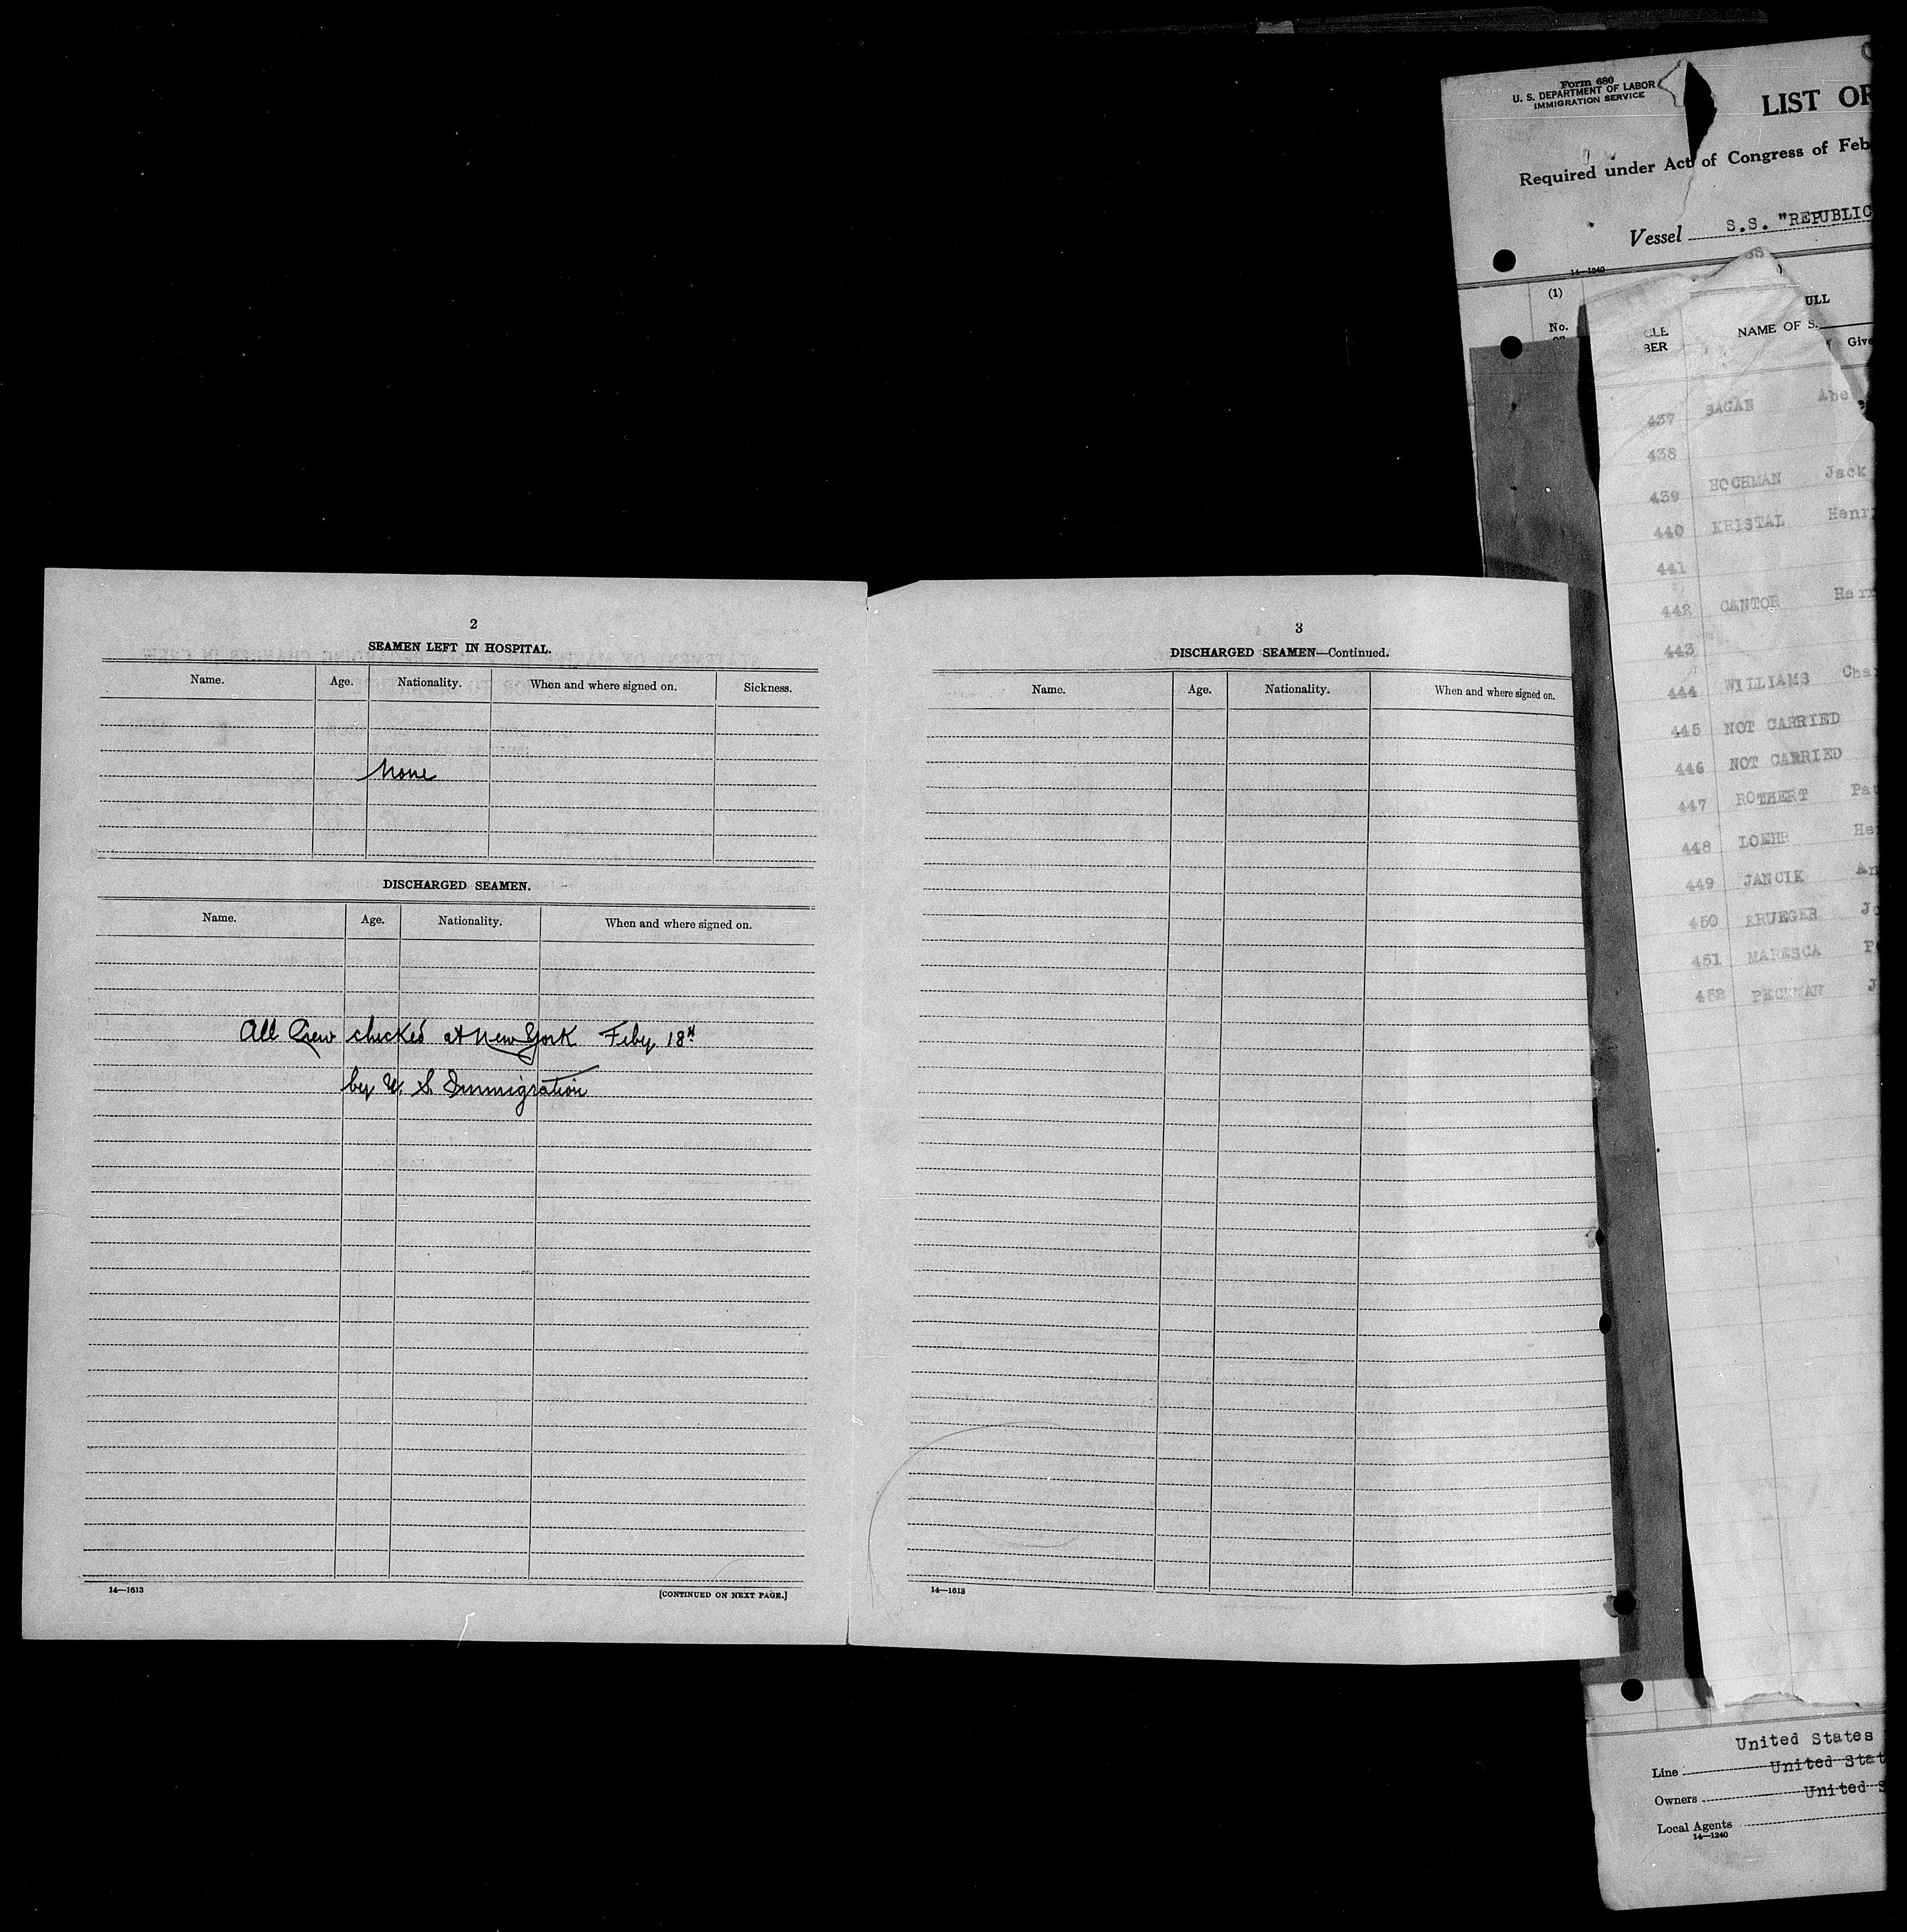 2
SEAMEN LEFT IN HOSPITAL.
Name. Age. Nationality. When and where signed on. Sickness.
None
DISCHARGED SEAMEN.
Name. Age. Nationality. When and where signed on.
All Crew checked at New York Feby 18th
by U. S. Immigration
14—1613 [CONTINUED ON NEXT PAGE.]
3
DISCHARGED SEAMEN—Continued.
Name. Age. Nationality. When and where signed on.
14—1613
Form 680
U. S. DEPARTMENT OF LABOR
IMMIGRATION SERVICE
LIST OR
Required under Act of Congress of Feb
Vessel S.S. "REPUBLIC
14—1240
(1)
No.
ULL
CLE
BER
NAME OF S.
Give
437 SAGAN Abe
438
439 HOCHMAN Jack
440 KRISTAL Henr
441
442 CANTOR Harr
443
444 WILLIAMS Cha
445 NOT CARRIED
446 NOT CARRIED
447 ROTHERT Pau
448 LOEHR He
449 JANCIK An
450 KRUEGER Jo
451 MARESCA P
452 PECKMAN J
United States
Line United Stat
Owners United S
Local Agents
14—1240